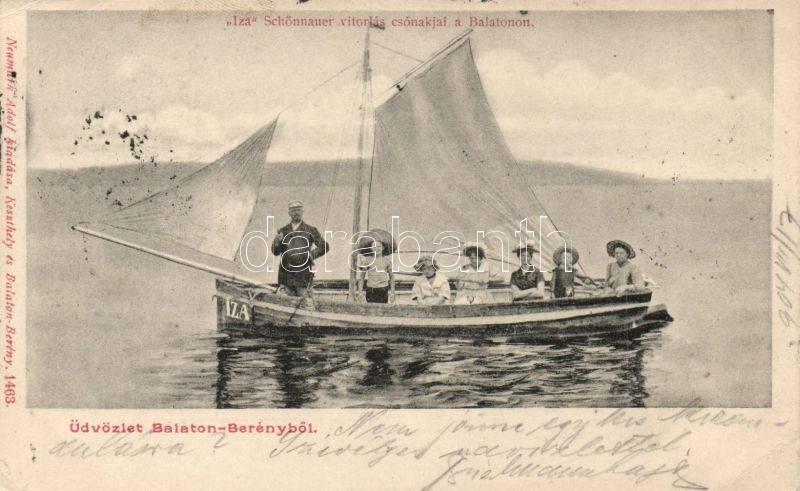 „Iza“ Schönnauer vitorlás csónakjai a Balatonon.
Neumark Adolf kiadása, Keszthely és Balaton-Berény. 1463.
darabanth.com
IZA
Üdvözlet Balaton-Berényből.
Nem jönne egy kis kiran-
dulásra? Szívélyes üdvözlettel